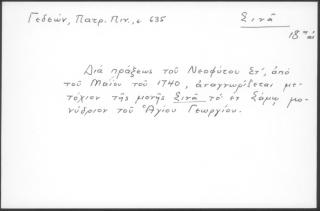 Γεδεών, Πατρ. Πιν., σ 635
Σινᾶ
18
Διά πράξεως τοῦ Νεοφύτου Στ', ἀπό
τοῦ Μαΐου τοῦ 1740, ἀναγνωρίζεται με-
τόχιον τῆς μονῆς Σινᾶ τό ἐν Σάμῳ μο-
νύδριον τοῦ Ἁγίου Γεωργίου.